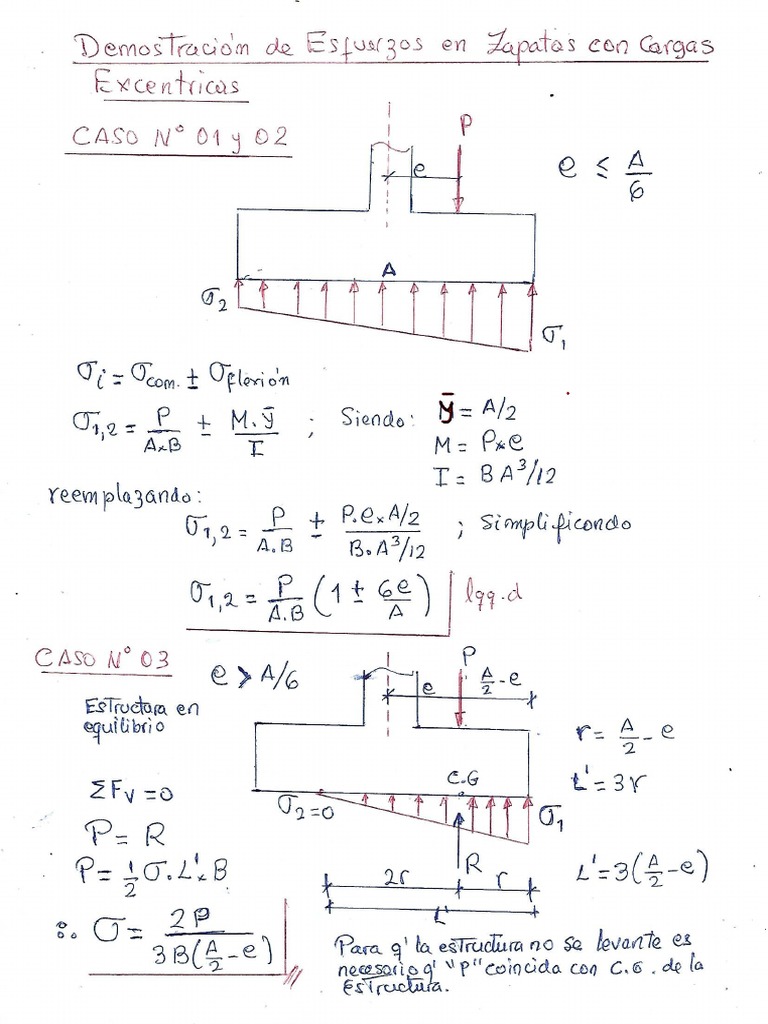 Demostración de Esfuerzos en Zapatas con Cargas
Excentricas
CASO N° 01 y 02
P
e
e ≤ A/6
A
σ2
σ1
σi = σcom. ± σflexión
σ1,2 = P/AxB ± M.ȳ/I ; Siendo: ȳ = A/2
M = Pxe
I = BA³/12
reemplazando:
σ1,2 = P/A.B ± P.exA/2 / B.A³/12 ; Simplificando
σ1,2 = P/A.B (1 ± 6e/A) lqq.d
CASO N° 03
e > A/6
P
A/2 - e
e
Estructura en
equilibrio
r = A/2 - e
C.G
L' = 3r
ΣFv = 0
σ2=0
σ1
P = R
R
P = 1/2 σ.L'xB
2r
r
L' = 3(A/2 - e)
L'
∴ σ = 2P / 3B(A/2 - e)
Para q' la estructura no se levante es
necesario q' "P" coincida con C.G. de la
Estructura.